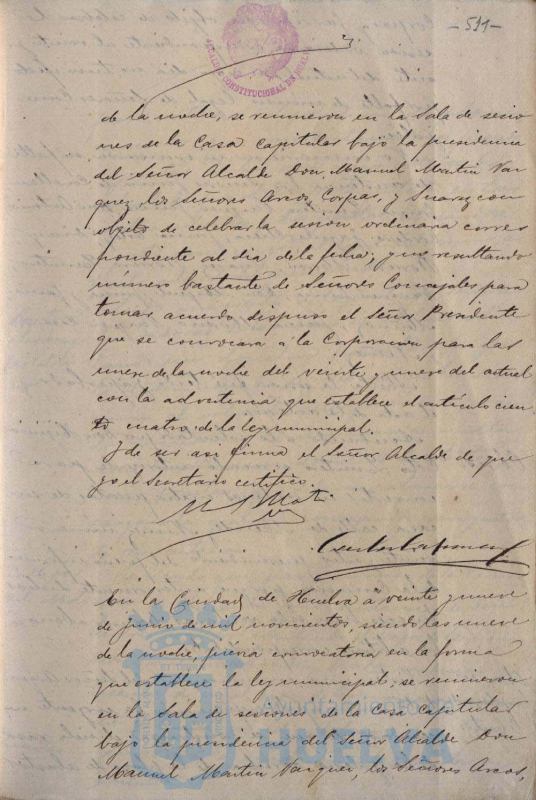 - 591 -
ALCALDIA CONSTITUCIONAL DE HUELVA
de la noche, se reunieron en la Sala de sesio
nes de la Casa capitular bajo la presidencia
del Señor Alcalde Don Manuel Martin Vaz
quez, los Señores Arcos, Corpas, y Suarez con
objeto de celebrar la sesion ordinaria corres
pondiente al dia de la fecha; y no resultando
número bastante de Señores Concejales para
tomar acuerdo dispuso el Señor Presidente
que se convocara á la Corporacion para las
nueve de la noche del veinte y nueve del actual
con la advertencia que establece el artículo cien
to cuatro de la ley municipal.
Y de ser asi firma el Señor Alcalde de que
yo el Secretario certifico.
M. Mart
En la Ciudad de Huelva á veinte y nueve
de Junio de mil novecientos, siendo las nueve
de la noche, previa convocatoria en la forma
que establece la ley municipal; se reunieron
en la Sala de sesiones de la Casa capitular
bajo la presidencia del Señor Alcalde Don
Manuel Martin Vazquez, los Señores Arcos,
Ayuntamiento de
HUELVA